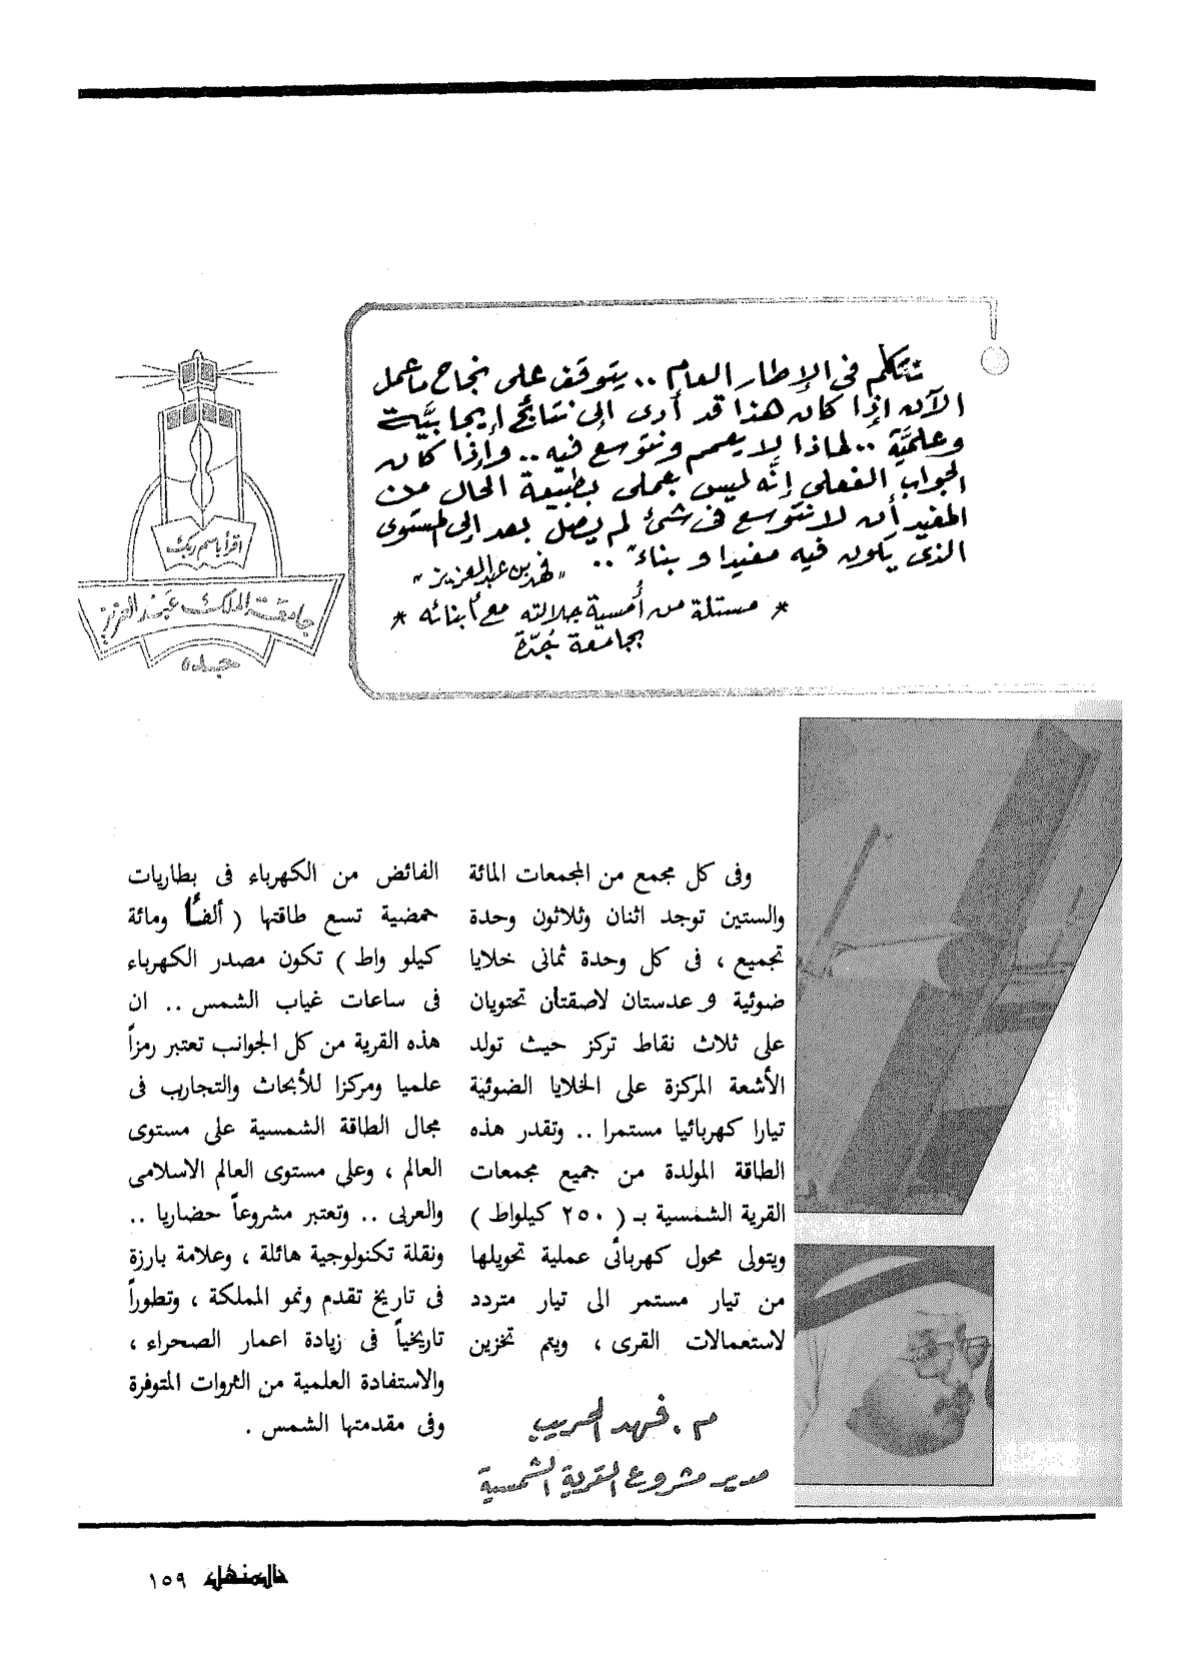 نتكلم في الإطار العام .. يتوقف على نجاح ما عمل
الآن إذا كان هذا قد أدى إلى نتائج إيجابيَّة
وعلميَّة .. لماذا لا يعمم ونتوسع فيه .. وإذا كان
الجواب الفعلي إنَّه ليس بعملي بطبيعة الحال من
المفيد أن لا نتوسع في شئ لم يصل بعد إلى المستوى
الذي يكون فيه مفيدا و بناء" ..
"فهد بن عبد العزيز"
* مستلة من أُمسية جلالته مع أبنائه *
بجامعة جُدّة
اقرأ باسم ربك
جامعة الملك عبد العزيز
جدة
وفى كل مجمع من المجمعات المائة
والستين توجد اثنان وثلاثون وحدة
تجميع ، فى كل وحدة ثمانى خلايا
ضوئية و عدستان لاصقتان تحتويان
على ثلاث نقاط تركز حيث تولد
الأشعة المركزة على الخلايا الضوئية
تيارا كهربائيا مستمرا .. وتقدر هذه
الطاقة المولدة من جميع مجمعات
القرية الشمسية بـ ( ٢٥٠ كيلواط )
ويتولى محول كهربائى عملية تحويلها
من تيار مستمر الى تيار متردد
لاستعمالات القرى ، ويتم تخزين
م . فهد الحريب
مدير مشروع القرية الشمسية
الفائض من الكهرباء فى بطاريات
حمضية تسع طاقتها ( ألفاً ومائة
كيلو واط ) تكون مصدر الكهرباء
فى ساعات غياب الشمس .. ان
هذه القرية من كل الجوانب تعتبر رمزاً
علميا ومركزا للأبحاث والتجارب فى
مجال الطاقة الشمسية على مستوى
العالم ، وعلى مستوى العالم الاسلامى
والعربى .. وتعتبر مشروعاً حضاريا ..
ونقلة تكنولوجية هائلة ، وعلامة بارزة
فى تاريخ تقدم ونمو المملكة ، وتطوراً
تاريخياً فى زيادة اعمار الصحراء ،
والاستفادة العلمية من الثروات المتوفرة
وفى مقدمتها الشمس .
المنهل ١٥٩